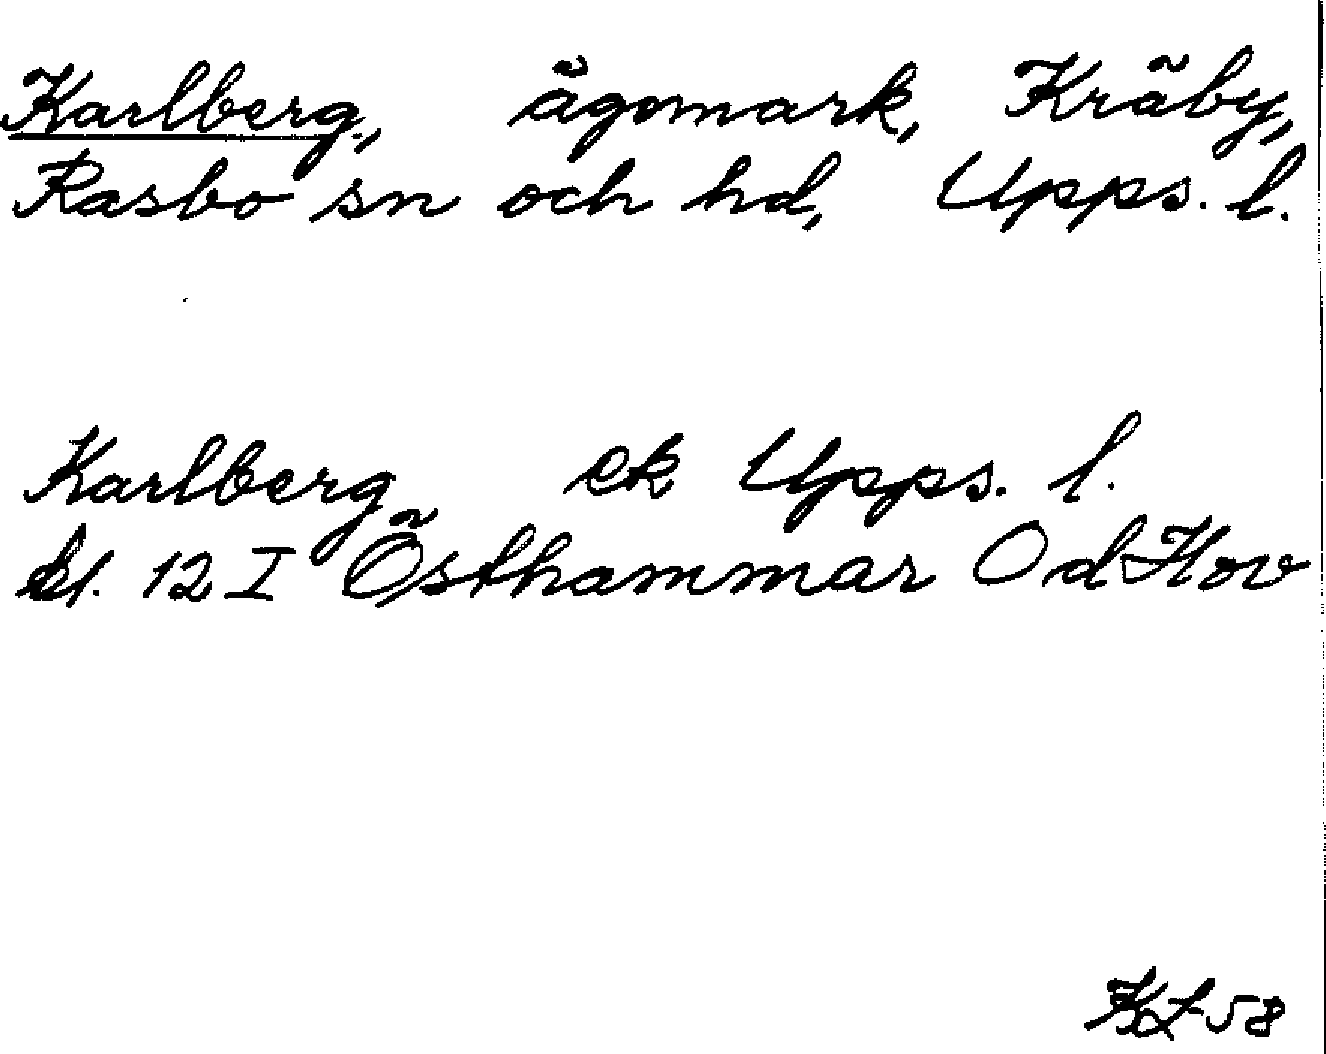 Karlberg, ägomark, Kräby,
Rasbo sn och hd, Upps. l.
Karlberg ek Upps. l.
bl. 12 I Östhammar Od Hov
KL 58